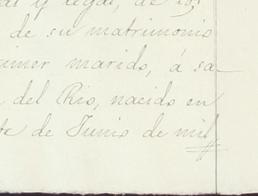 y legal, de los
de su matrimonio
primer marido, á sa-
del Rio, nacido en
de Junio de mil